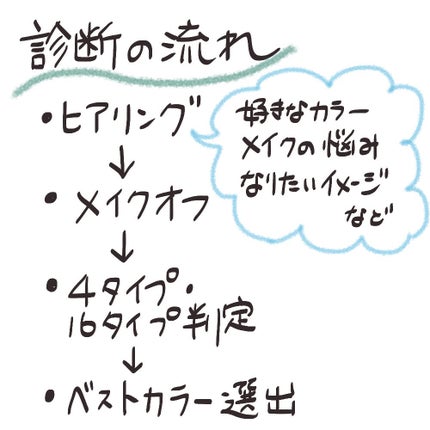 診断の流れ
・ヒアリング
好きなカラー
メイクの悩み
なりたいイメージ
など
↓
・メイクオフ
↓
・4タイプ・
16タイプ判定
↓
・ベストカラー選出